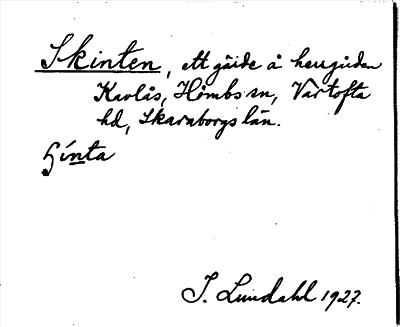 Skinten, ett gärde å herrgården
Kavlås, Hömbs sn, Vartofta
hd, Skaraborgs län.
I. Lundahl 1927.